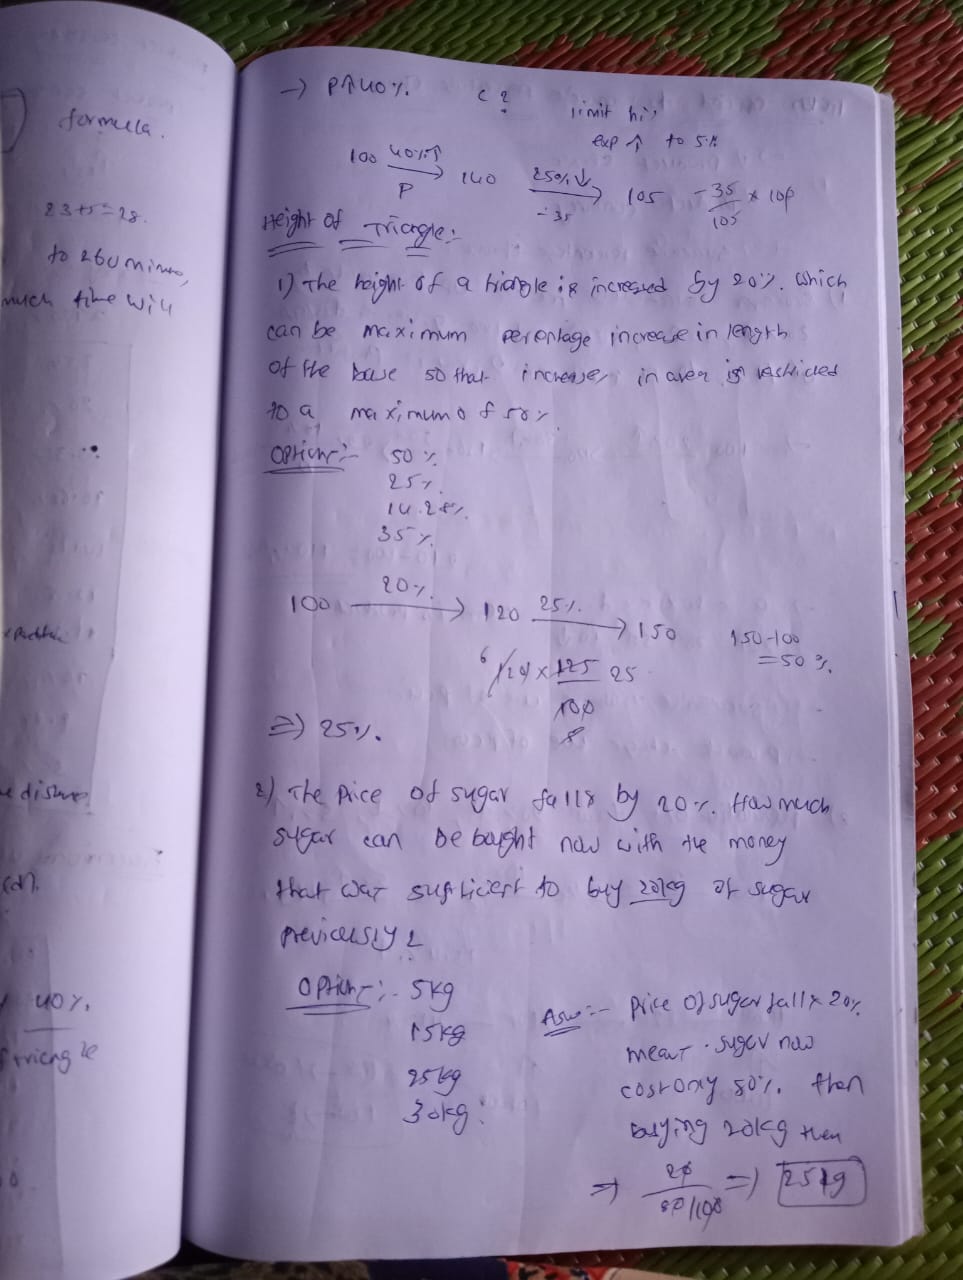 formula.
23+5=28.
to 260
much time will
40%.
triangle
→ P↑40%. C ?
limit his
exp ↑ to 5%
100 40%↑ → 140 25%↓ → 105 - 35/105 x 100
P -35
Height of Triangle:-
1) The height of a triangle is increased by 20%. Which
can be maximum percentage increase in length
of the base so that increase in area is restricted
to a maximum of 50%.
Option:- 50%
25%.
14.28%.
35%.
100 20%. → 120 25%. → 150 150-100
=50%.
6 120 x 125 25
100
8
⇒ 25%.
2) The Price of sugar falls by 20%. How much
sugar can be bought now with the money
that was sufficient to buy 20kg of sugar
previously ?
Option:- 5kg
15kg
25kg
30kg.
Asw:- Price of sugar falls 20%
mean sugar now
cost ony 80%. then
buying 20kg then
⇒ 20 / 80/100 ⇒ 25kg